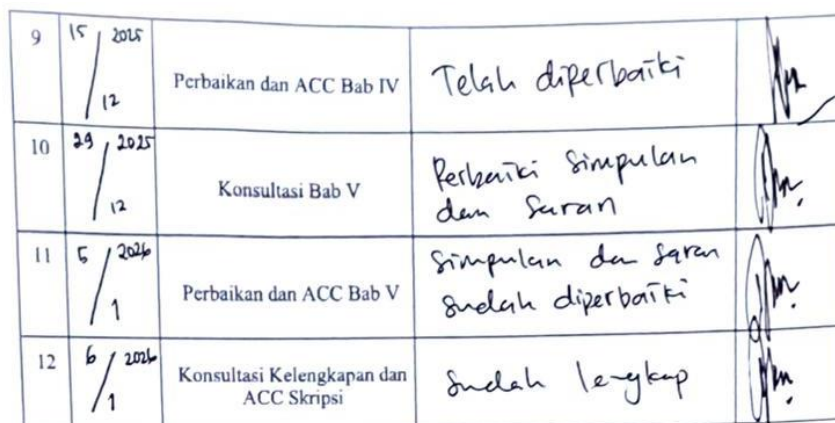 9 15/12 2025 Perbaikan dan ACC Bab IV Telah diperbaiki
10 29/12 2025 Konsultasi Bab V Perbaiki Simpulan
dan Saran
11 5/1 2026 Perbaikan dan ACC Bab V Simpulan dan Saran
sudah diperbaiki
12 6/1 2026 Konsultasi Kelengkapan dan
ACC Skripsi Sudah lengkap